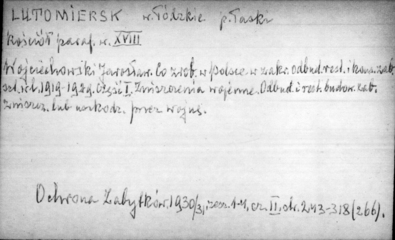 LUTOMIERSK w. łódzkie p. łaski
Kościół paraf. w. XVIII
Wojciechowski Jarosław. Co zrob. w Polsce w zakr. odbud. rest. i kons. zab.
szt. i t. d. 1919-1929. Część I. Zniszczenia wojenne. Odbud. i rest. budow. zab.
zniszcz. lub uszkodz. przez wojnę.
Ochrona Zabytków. 1930/31, zesz. 1-4, cz. II, str. 243-318 (266).